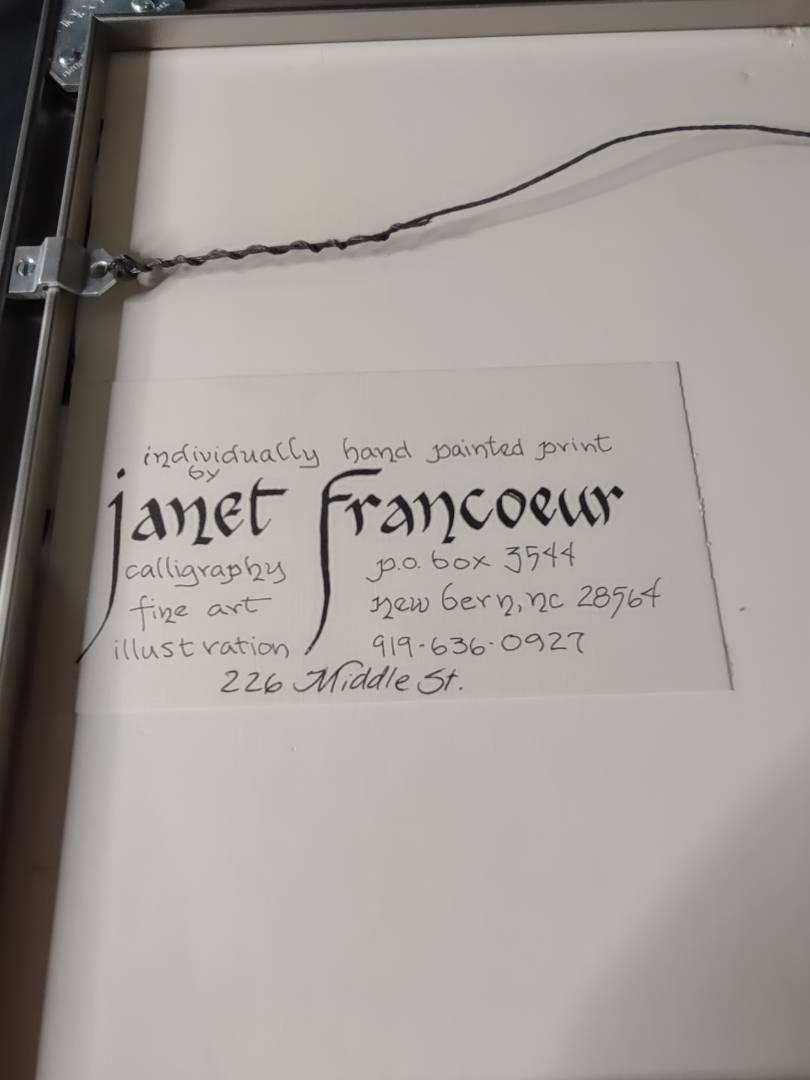 individually hand painted print
by
janet francoeur
calligraphy
fine art
illustration
p.o. box 3544
new bern, nc 28564
919-636-0927
226 Middle St.